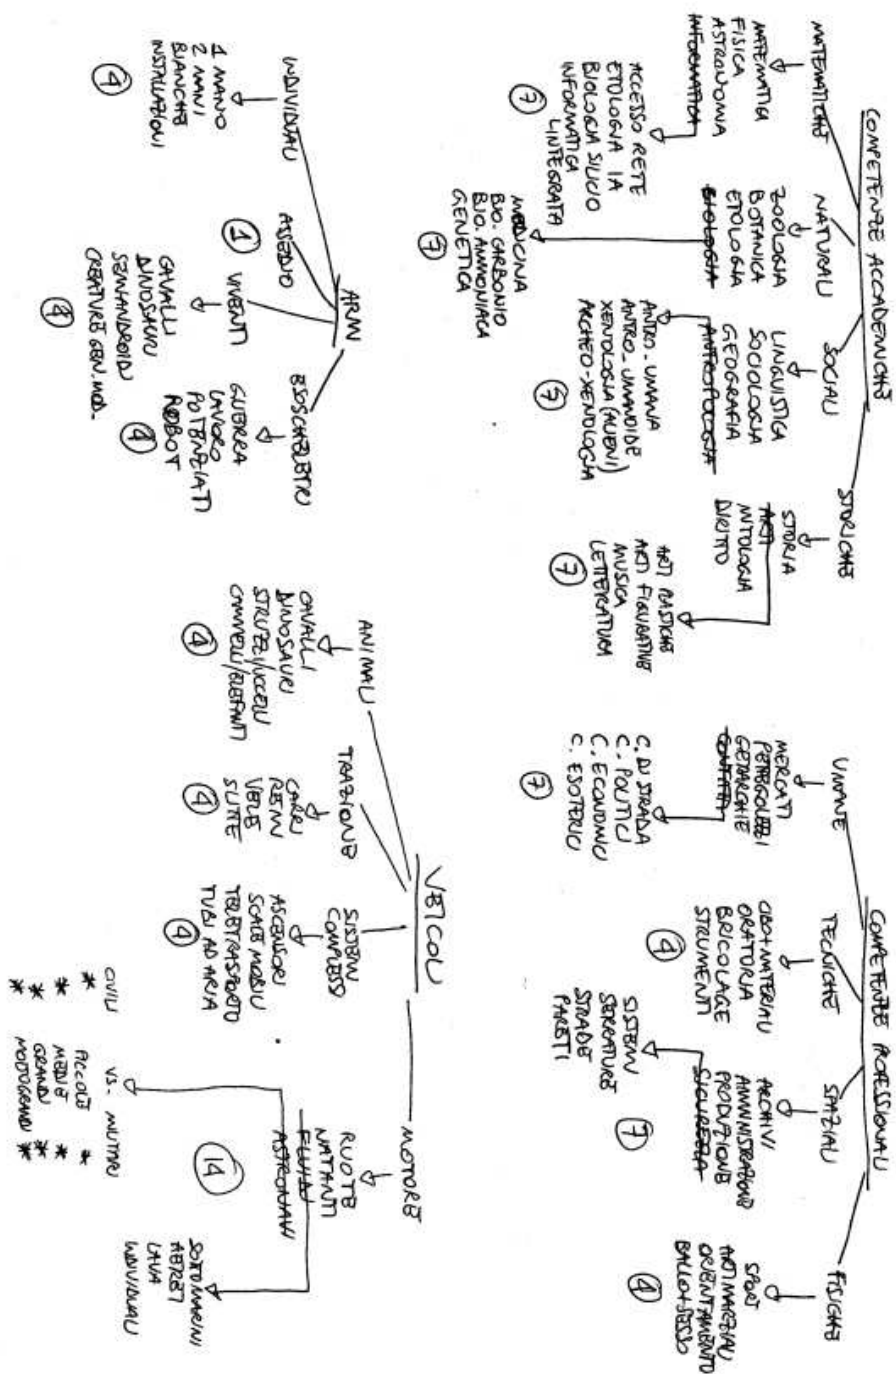 COMPETENZE ACCADEMICHE
MATEMATICHE
MATEMATICA
FISICA
ASTRONOMIA
INFORMATICA
ACCESSO RETE
ETOLOGIA IA
BIOLOGIA SILICIO
INFORMATICA
INTEGRATA
7
NATURALI
ZOOLOGIA
BOTANICA
ETOLOGIA
BIOLOGIA
MEDICINA
BIO. CARBONIO
BIO. AMMONIACA
GENETICA
7
SOCIALI
LINGUISTICA
SOCIOLOGIA
GEOGRAFIA
ANTROPOLOGIA
ANTRO. UMANA
ANTRO. UMANOIDE
XENTOLOGIA (ALIENI)
ARCHEO-XENOLOGIA
7
STORICHE
STORIA
ARTI
MITOLOGIA
DIRITTO
ARTI PLASTICHE
ARTI FIGURATIVE
MUSICA
LETTERATURA
7
COMPETENZE PROFESSIONALI
UMANE
MERCATI
PETTEGOLEZZI
GERARCHIE
CONTATTI
C. DI STRADA
C. POLITICI
C. ECONOMICI
C. ESOTERICI
7
TECNICHE
CIBO+MATERIALI
ORATORIA
BRICOLAGE
STRUMENTI
4
SPAZIALI
ARCHIVI
AMMINISTRAZIONE
PRODUZIONE
SICUREZZA
SISTEMI
SERRATURE
STRADE
PARETI
7
FISICHE
SPORT
ARTI MARZIALI
ORIENTAMENTO
BALLO+SESSO
4
ARMI
INDIVIDUALI
1 MANO
2 MANI
BIANCHE
INSTALLAZIONI
4
ASSEDIO
1
VIVENTI
CAVALLI
DINOSAURI
SEMIANDROIDI
CREATURE GEN. MOD.
4
ESOSCHELETRI
GUERRA
LAVORO
POTENZIATI
ROBOT
4
VEICOLI
ANIMALI
CAVALLI
DINOSAURI
STRUZZI/UCCELLI
CAMMELLI/ELEFANTI
4
TRAZIONE
CARRI
REMI
VELE
SLITTE
4
SISTEMI
COMPLESSI
ASCENSORI
SCALE MOBILI
TELETRASPORTO
TUBI AD ARIA
4
MOTORE
RUOTE
NATANTI
FLUIDI
ASTRONAVI
14
SOTTOMARINI
AEREI
LAVA
INDIVIDUALI
CIVILI vs. MILITARI
* PICCOLE *
* MEDIE *
* GRANDI *
* MOLTOGRANDI *